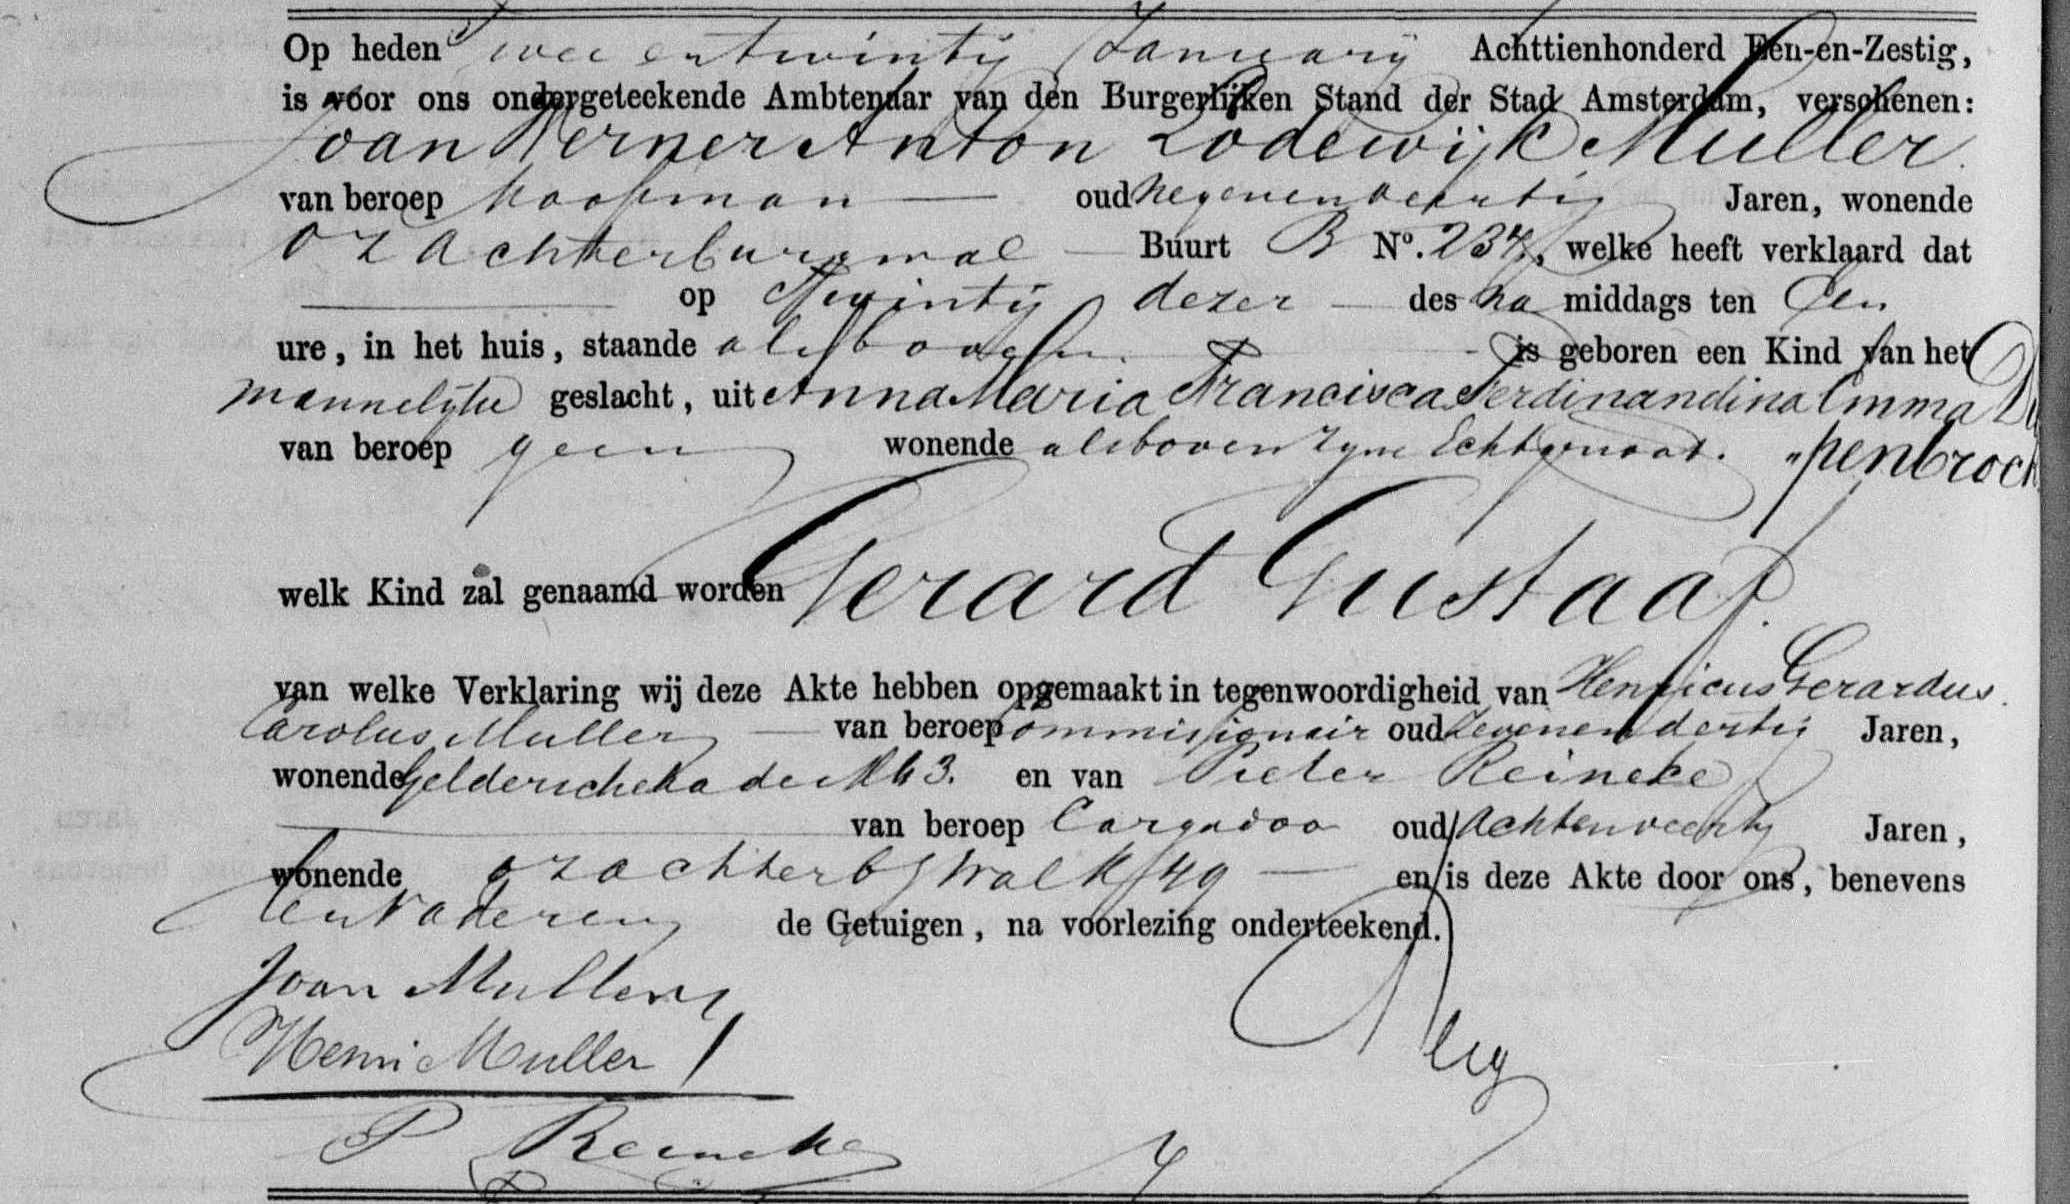 Op heden Twee entwintig January Achttienhonderd Een-en-Zestig,
is voor ons ondergeteekende Ambtenaar van den Burgerlijken Stand der Stad Amsterdam, verschenen:
Joan Werner Anton Lodewijk Muller
van beroep Koopman oud negenenveertig Jaren, wonende
OZ Achterburgwal Buurt B No. 234, welke heeft verklaard dat
op Twintig dezer des na middags ten Een
ure, in het huis, staande alsboven is geboren een Kind van het
mannelijke geslacht, uit Anna Maria Francisca Ferdinandina Emma Du
van beroep geen wonende alsboven zyne Echtgenoot. „penbroch
welk Kind zal genaamd worden Gerard Gustaaf.
van welke Verklaring wij deze Akte hebben opgemaakt in tegenwoordigheid van Henricus Gerardus
Carolus Muller van beroep Commissionair oud Zevenendertig Jaren,
wonende Gelderschekade en van Pieter Reineke
van beroep Cargadoo oud Achtenveertig Jaren,
wonende oz achterbgwal K 149 en is deze Akte door ons, benevens
den Vader en de Getuigen, na voorlezing onderteekend.
Joan Muller
Henri Muller
P Reineke